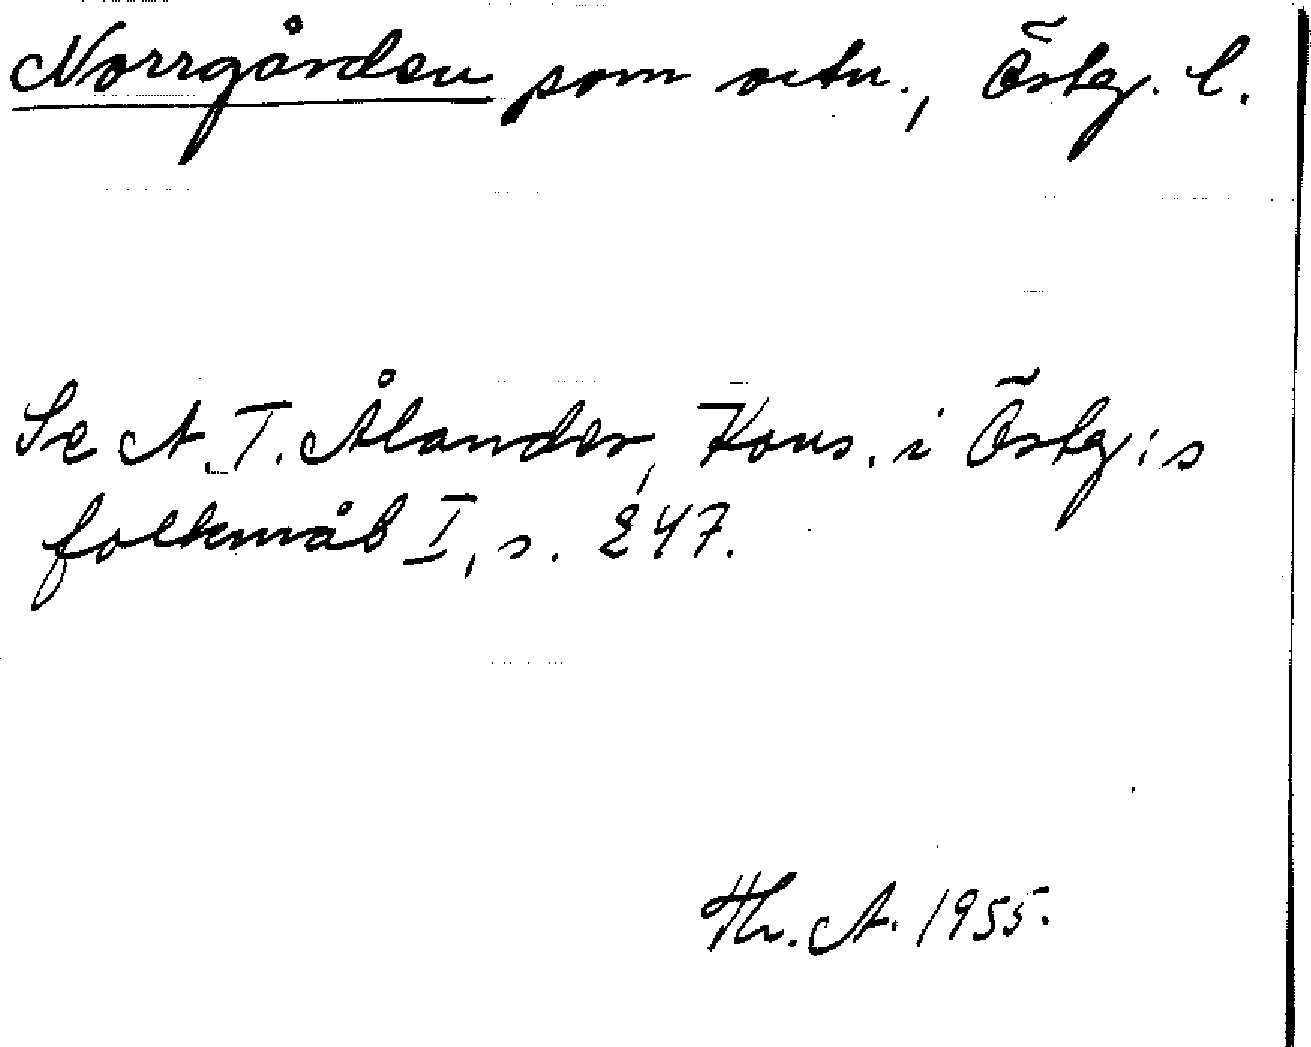 Norrgården som ortn., Östg. l.
Se A. T. Ålander, Kons. i Östg:s
folkmål I, s. 247.
Th. A. 1955.